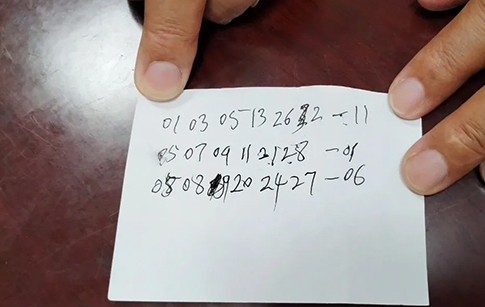 01 03 05 13 26 32 - 11
05 07 09 11 21 28 - 01
05 08 20 24 27 - 06